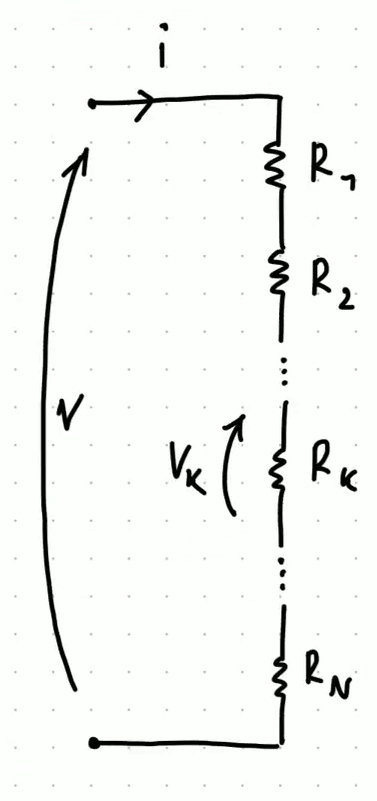 i
R1
R2
...
V
VK
RK
...
RN